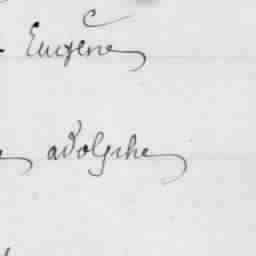 Eugène
adolphe